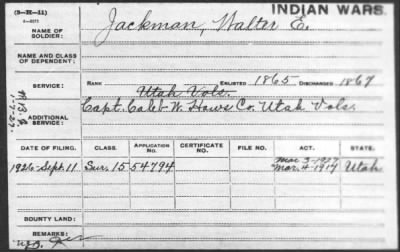 (3—R—11)
INDIAN WARS.
NAME OF SOLDIER: Jackman, Walter E.
NAME AND CLASS OF DEPENDENT:
SERVICE: RANK ENLISTED 1865 DISCHARGED 1867
Utah Vols.
ADDITIONAL SERVICE: Capt. Caleb W. Haws Co. Utah Vols.
DATE OF FILING. CLASS. APPLICATION No. CERTIFICATE No. FILE NO. ACT. STATE.
Mar 3-1927
1926-Sept. 11 Sur. 1554794 Mar. 4-1917 Utah
BOUNTY LAND:
REMARKS: